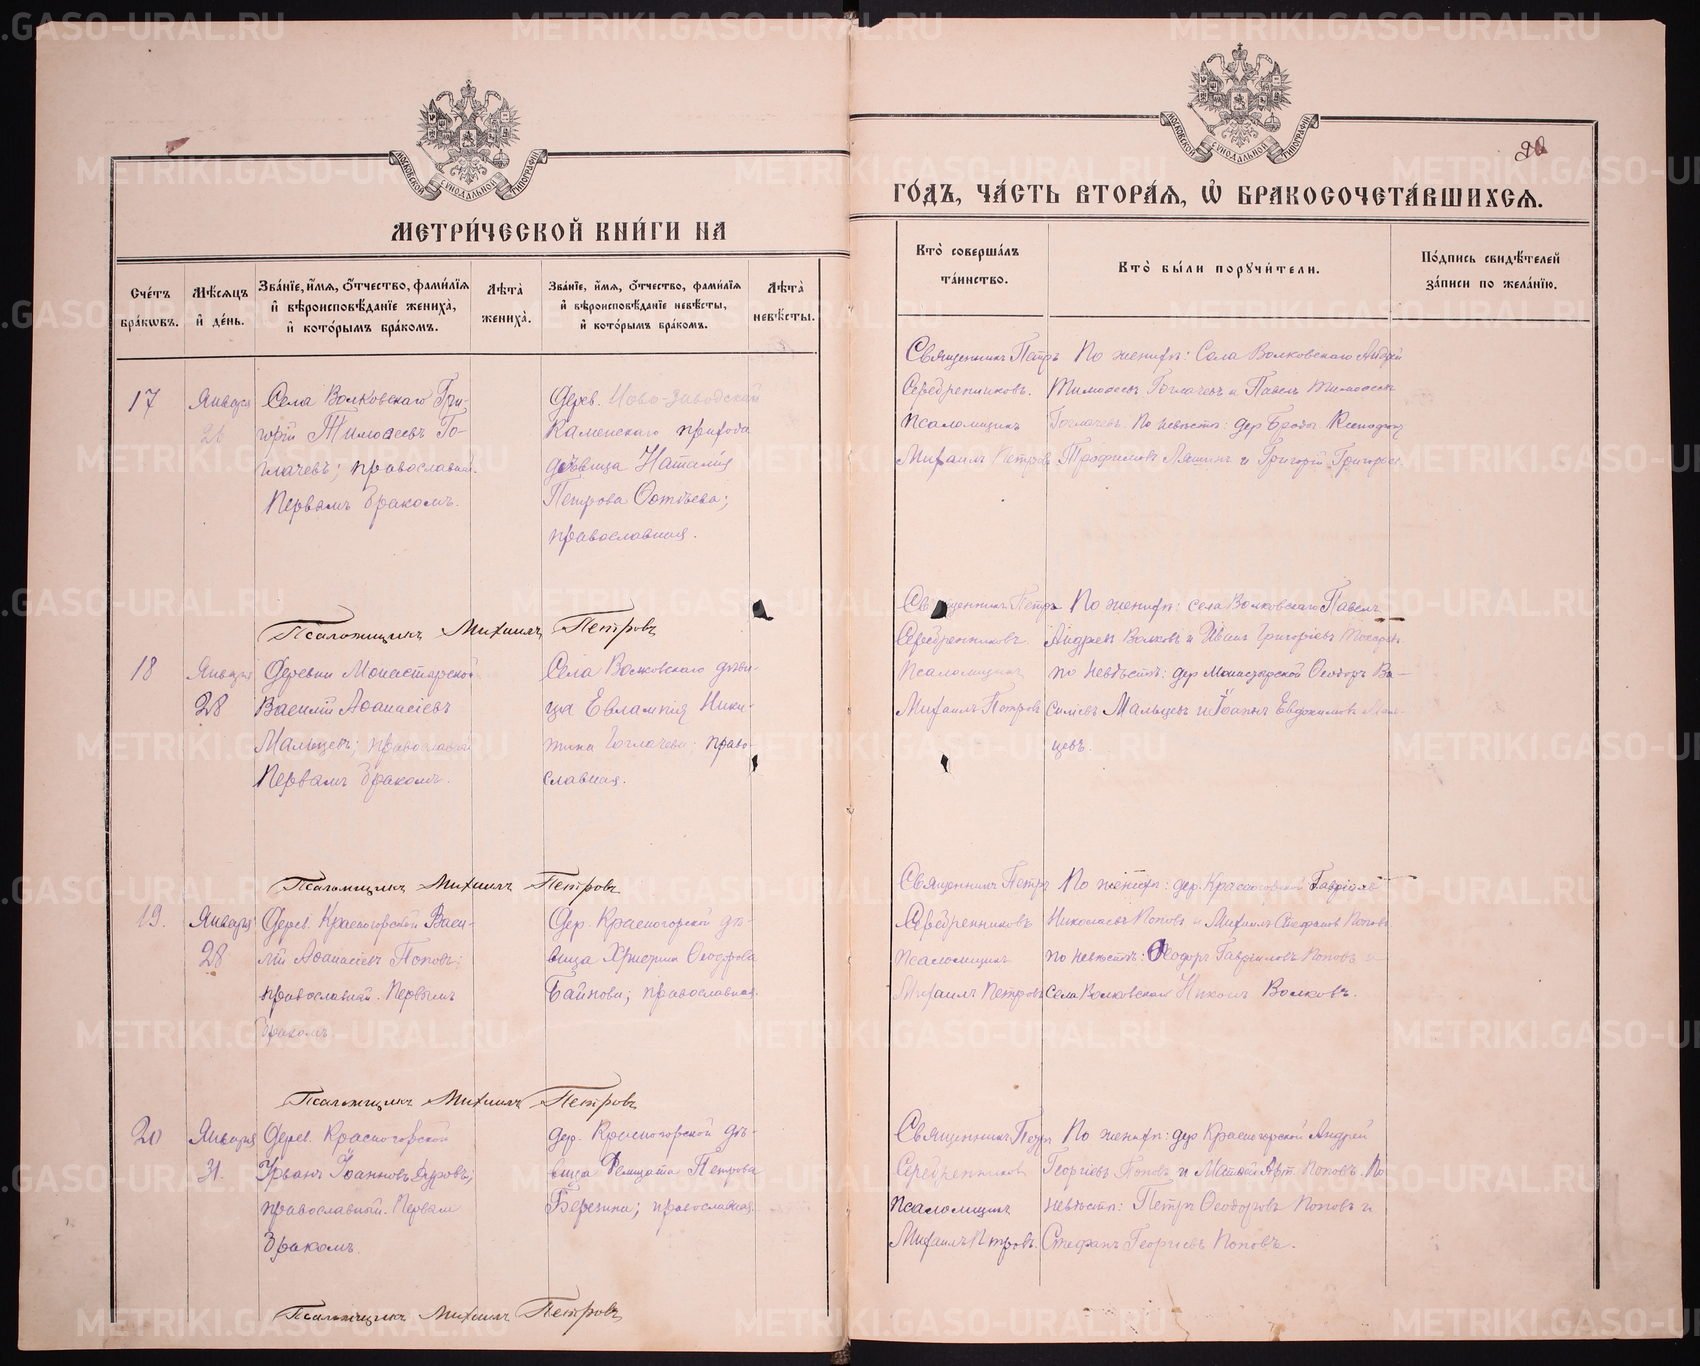 МЕТРИ́ЧЕСКОЙ КНИ́ГИ НА
ГО́ДЪ, ЧА́СТЬ ВТОРА́Я, Ѿ БРАКОСОЧЕТА́ВШИХСЯ.
МОСКОВСКОЙ СѴНОДАЛЬНОЙ ТИПОГРАФІИ
МОСКОВСКОЙ СѴНОДАЛЬНОЙ ТИПОГРАФІИ
Сче́тъ бра́кѡвъ.
Мѣ́сяцъ и҆ де́нь.
Зва́нїе, и҆́мя, ѻ҆́тчество, фами́лїя и҆ вѣроисповѣ́данїе жениха̀, и҆ кото́рымъ бра́комъ.
Лѣ́та жениха̀.
Зва́нїе, и҆́мя, ѻ҆́тчество, фами́лїя и҆ вѣроисповѣ́данїе невѣ́сты, и҆ кото́рымъ бра́комъ.
Лѣ́та невѣ́сты.
Кто̀ соверша́лъ та́инство.
Кто̀ бы́ли порꙋчи́тели.
По́дпись свидѣ́телей за́писи по жела́нїю.
17
Января
21
Села Волковскаго Гри-
горій Тимоѳеевъ Го-
глачевъ; православный.
Первымъ бракомъ.
Дерев. Ново-Заводской
Каменскаго прихода
дѣвица Наталія
Петрова
православная.
Священникъ Петръ
Серебренниковъ.
Псаломщикъ
Михаилъ Петровъ
По женихѣ: Села Волковскаго Андрей
Тимоѳеевъ Гоглачевъ и Павелъ Тимоѳеевъ
Гоглачевъ. По невѣстѣ: дер. Броды
Трофимовъ и Григорій Григорьев
Псаломщикъ Михаилъ Петровъ
18
Января
28
Деревни Монастырской
Василій Аѳанасіевъ
Мальцевъ; православный
Первымъ бракомъ.
Села Волковскаго дѣви-
ца Евлампія Ники-
тина Гоглачева; право-
славная.
Священникъ Петръ
Серебренниковъ
Псаломщикъ
Михаилъ Петровъ
По женихѣ: села Волковскаго Павелъ
Андреевъ Волковъ и Иванъ Григоріевъ
по невѣстѣ: дер Монастырской Ѳеодоръ Ва-
силіевъ Мальцевъ и Іоаннъ Евдокимовъ Маль-
цевъ.
Псаломщикъ Михаилъ Петровъ
19.
Января
28
Дерев. Красногорской Васи-
лій Аѳанасіевъ Поповъ;
православный. Первымъ
бракомъ.
Дер. Красногорской дѣ-
вица Христина Ѳеодорова
Байнова; православная.
Священникъ Петръ
Серебренниковъ
Псаломщикъ
Михаилъ Петровъ
По женихѣ: дер. Красногорской Гавріилъ
Николаевъ Поповъ и Михаилъ Стефановъ Поповъ
по невѣстѣ: Ѳеодоръ Гавріиловъ Поповъ и
Села Волковскаго Никонъ Волковъ.
Псаломщикъ Михаилъ Петровъ
20
Января
31.
Дерев. Красногорской
Урванъ Іоанновъ
православный. Первымъ
бракомъ.
Дер. Красногорской дѣ-
вица Фелицата Петрова
Березина; православная.
Священникъ Петръ
Серебренниковъ
Псаломщикъ
Михаилъ Птровъ.
По женихѣ: дер Красногорской Андрей
Георгіевъ Поповъ и Матѳей Арт. Поповъ. По
невѣстѣ: Петръ Ѳеодоровъ Поповъ и
Стефанъ Георгіевъ Поповъ.
Псаломщикъ Михаилъ Петровъ
METRIKI.GASO-URAL.RU